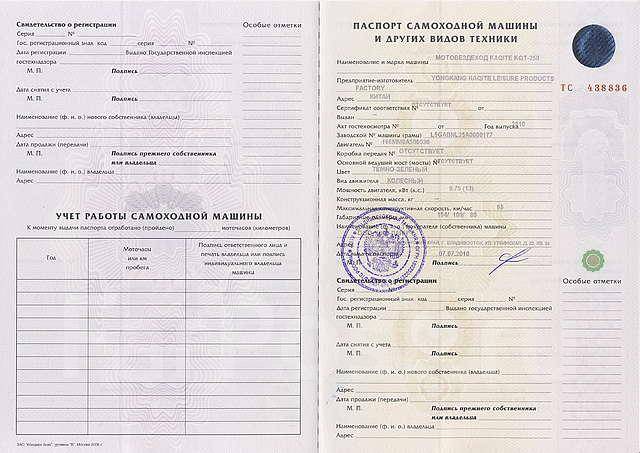 Свидетельство о регистрации Особые отметки
Серия №
Гос. регистрационный знак код серия №
Дата регистрации Выдано Государственной инспекцией
гостехнадзора
М. П. Подпись
Дата снятия с учета
М. П. Подпись
Наименование (ф. и. о.) нового собственника (владельца)
Адрес
Дата продажи (передачи)
М. П. Подпись прежнего собственника
или владельца
Наименование (ф. и. о.) владельца
Адрес
УЧЕТ РАБОТЫ САМОХОДНОЙ МАШИНЫ
К моменту выдачи паспорта отработано (пройдено) моточасов (километров)
Год
Моточасы
или км
пробега
Подпись ответственного лица и
печать владельца или подпись
индивидуального владельца
машины
ПАСПОРТ САМОХОДНОЙ МАШИНЫ
И ДРУГИХ ВИДОВ ТЕХНИКИ
Наименование и марка машины МОТОВЕЗДЕХОД KAQITE KQT-250
Предприятие-изготовитель YONGKANG HAOITE LEISURE PRODUCTS
FACTORY
ТС 438836
Адрес КИТАЙ
Сертификат соответствия № ОТСУТСТВУЕТ от
Выдан
Акт гостехосмотра № от Год выпуска 2010
Заводской № машины (рамы)
Двигатель №
Коробка передач № ОТСУТСТВУЕТ
Основной ведущий мост (мосты) № ОТСУТСТВУЕТ
Цвет ТЕМНО-ЗЕЛЕНЫЙ
Вид движителя КОЛЕСНЫЙ
Мощность двигателя, кВт (л.с.) 9.75 (13)
Конструкционная масса, кг
Максимальная конструктивная скорость, км/час
Габаритные размеры
Наименование (ф. и. о.) собственника (владельца) машины
Адрес
Дата выдачи паспорта 07.07.2010
М. П. Подпись
Свидетельство о регистрации Особые отметки
Серия №
Гос. регистрационный знак код серия №
Дата регистрации Выдано государственной инспекцией
гостехнадзора
М. П. Подпись
Дата снятия с учета
М. П. Подпись
Наименование (ф. и. о.) нового собственника (владельца)
Адрес
Дата продажи (передачи)
М. П. Подпись прежнего собственника
или владельца
Наименование (ф. и. о.) владельца
Адрес